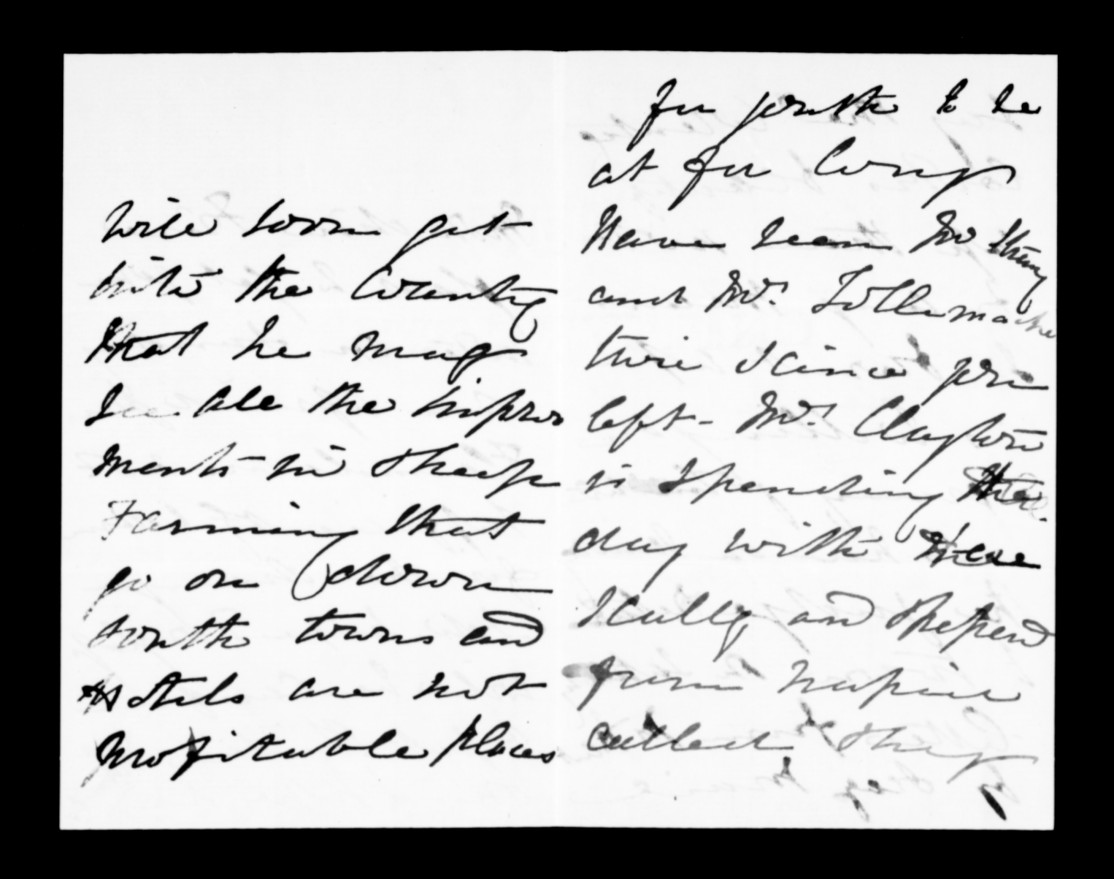 will soon get
into the Country
that he may
See all the improve
ments in Sheep
Farming that
go on down
South towns and
Hotels are not
profitable places
for youth to be
at for long
Have seen Mr
and Mr. Tollemache
twice since you
left - Mr. Clayton
is spending the
day with
Kelly and Shepherd
from Napier
called they